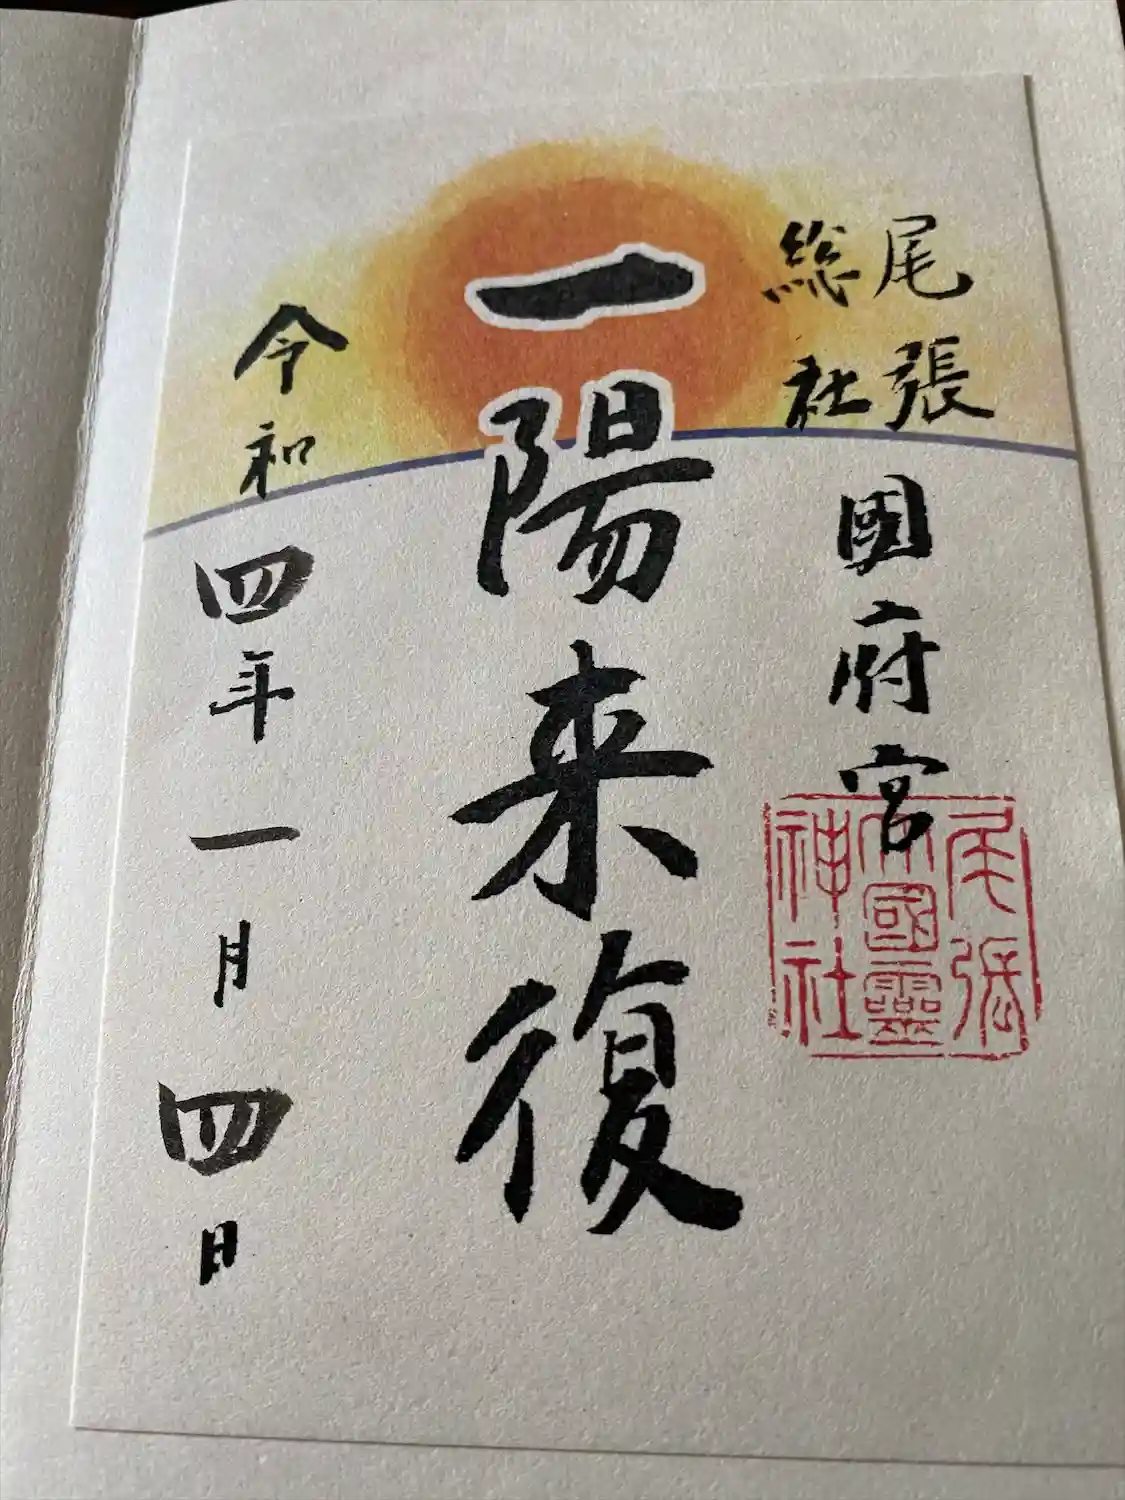 尾張
総社
國府宮
一陽来復
令和四年一月四日
尾張
大國靈
神社